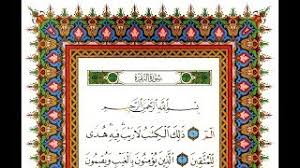 سُورَةُ الْبَقَرَةِ
بِسْمِ اللَّهِ الرَّحْمَٰنِ الرَّحِيمِ
الٓمٓ ۝ ذَٰلِكَ الْكِتَٰبُ لَا رَيْبَ فِيهِ هُدًى
لِّلْمُتَّقِينَ ۝ الَّذِينَ يُؤْمِنُونَ بِالْغَيْبِ وَيُقِيمُونَ